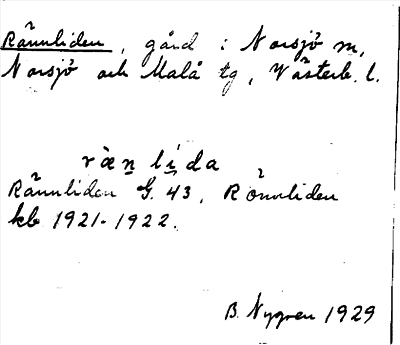 Rännliden, gård i Norsjö sn,
Norsjö och Malå tg, Västerb. l.
ræn lida
Rännliden G. 43, Rönnliden
kb 1921-1922.
B. Nygren 1929